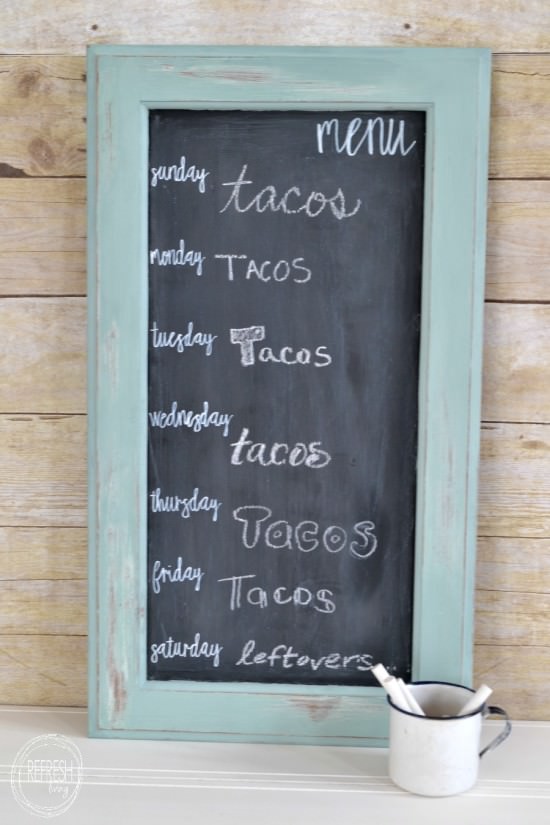 menu
sunday tacos
monday TACOS
tuesday Tacos
wednesday tacos
thursday Tacos
friday Tacos
saturday leftovers...
REFRESH
living